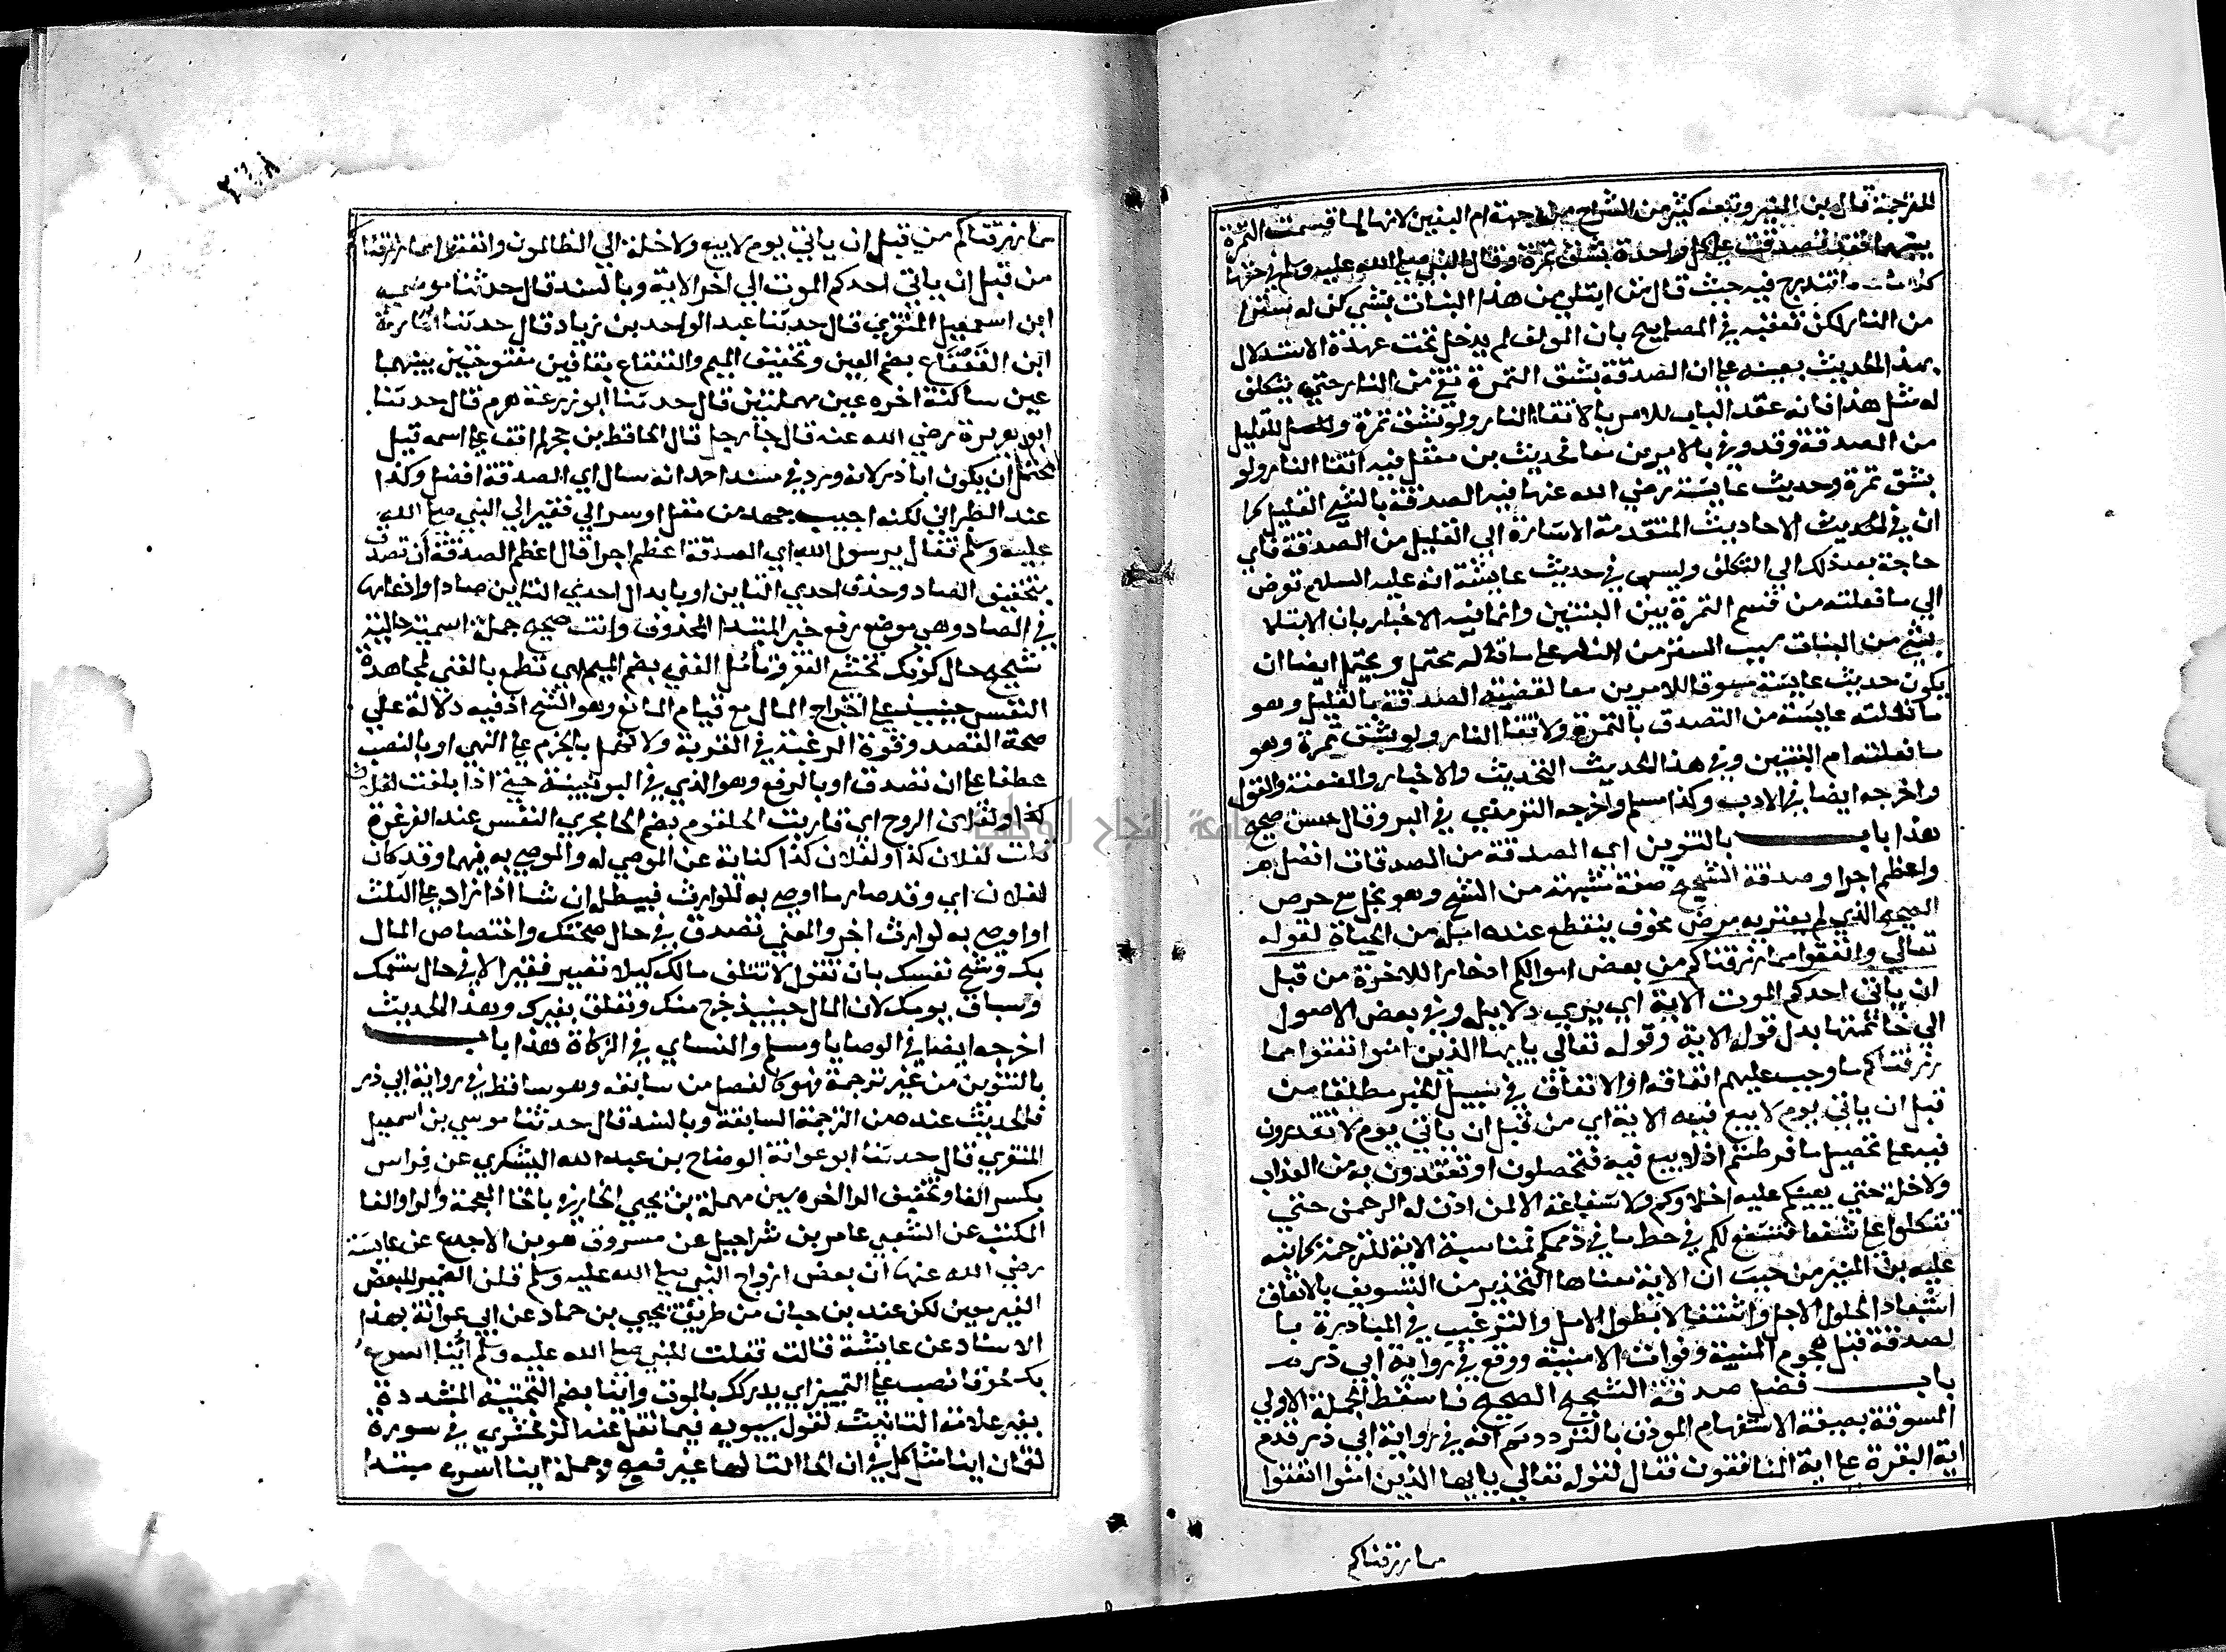 للترجمة قال بن المنير وتبعه كثير من الشراح من جهة ام البنتين لانها لما قسمت التمرة
بينهما فقد تصدقت على كل واحدة بشق تمرة وقال النبي صلى الله عليه وسلم في حقها
كلاما تندرج فيه حيث قال من ابتلي من هذا البنات بشي كن له سترا
من النار لكن تعقبه في المصابيح بان المولف لم يدخل تحت عهدة الاستدلال
بهذا الحديث بعينه على ان الصدقة بشق التمرة تقي من النار حتي يتكلف
له مثل هذا فانه عقد الباب للامر بالاتقاء النار ولو بشق تمرة وللقليل
من الصدقة وقد وفي بالامرين معا فحديث بن معقل فيه اتقا النار ولو
بشق تمرة وحديث عايشة رضي الله عنها فيه الصدقة بالشي القليل كما
ان في الحديث الاحاديث المتقدمة الاشارة الي القليل من الصدقة فاي
حاجة بعد ذلك الي التكلف وليس في حديث عايشة انه عليه السلام تعرض
الي ما فعلته من قسم التمرة بين البنتين وانما فيه الاخبار بان الابتلا
بشي من البنات سبب الستر من النار على ما قاله محتمل ويحتمل ايضا ان
يكون حديث عايشة مسوقا للامرين معا لقضية الصدقة بالقليل وهو
ما فعلته عايشة من التصدق بالتمرة ولاتقا النار ولو بشق تمرة وهو
ما فعلته ام البنتين وفي هذا الحديث التحديث والاخبار والعنعنة والقول
واخرجه ايضا في الادب وكذا مسلم واخرجه الترمذي في البر وقال حسن صحيح
هذا باب بالتنوين اي الصدقة من الصدقات افضل
واعظم اجرا وصدقة الشحيح صفة مشبهة من الشح وهو بخل مع حرص
الصحيح الذي لم يعتريه مرض مخوف ينقطع عنده امله من الحياة لقوله
تعالي وانفقوا مما رزقناكم من بعض اموالكم ادخارا للاخرة من قبل
ان ياتي احدكم الموت الاية اي يري دلايله وفي بعض الاصول
الي خاتمتها بدل قوله الاية وقوله تعالي يا يها الذين امنوا انفقوا مما
رزقناكم ما وجب عليهم انفاقه او الانفاق في سبيل الخير مطلقا من
قبل ان ياتي يوم لا بيع فيه الاية اي من قبل ان ياتي يوم لا تقدرون
فيه على تحصيل ما فرطتم اذ لا بيع فيه فتحصلون او تفتدون به من العذاب
ولا خلة حتي يعينكم عليه اخلاوكم ولا شفاعة الا لمن اذن له الرحمن حتي
تتكلوا على شفعا فتشفع لكم في حط ما في ذممكم فمناسبة الاية للترجمة كما نبه
عليه بن المنير من حيث ان الاية معناها التحذير من التسويف بالانفاق
استبعادا لحلول الاجل واشتغالا بطول الامل والترغيب في المبادرة با
لصدقة قبل هجوم المنية وفوات الامنية ووقع في رواية ابي ذر
باب فضل صدقة الشحيح الصحيح فاسقط الجملة الاولي
المسوقة بصيغة الاستفهام الموذن بالتردد ثم انه في رواية ابي ذر قدم
اية البقرة على اية المنافقون فقال لقوله تعالي يا يها الذين امنوا انفقوا
مما رزقناكم
مما رزقناكم من قبل ان ياتي يوم لا بيع ولا خلة الي الظالمون وانفقوا مما رزقناكم
من قبل ان ياتي احدكم الموت الي اخر الاية وبالسند قال حدثنا موسى
ابن اسمعيل المنقري قال حدثنا عبد الواحد بن زياد قال حدثنا عمارة
ابن القعقاع بضم العين وتخفيف الميم والقعقاع بقافين مفتوحتين بينهما
عين ساكنة اخره عين مهملتين قال حدثنا ابو زرعة هرم قال حدثنا
ابو هريرة رضي الله عنه قال جا رجل قال الحافظ بن حجر لم اقف على اسمه قيل
يحتمل ان يكون ابا ذر لانه ورد في مسند احمد انه سال اي الصدقة افضل وكذا
عند الطبراني لكنه اجيب جهد من مقل او سر الي فقير الي النبي صلى الله
عليه وسلم فقال يا رسول الله اي الصدقة اعظم اجرا قال اعظم الصدقة ان تصدق
بتخفيف الصاد وحذف احدي التاين او بابدال احدي التاين صادا وادغامها
في الصاد وهي موضع رفع خبر المبتدا المحذوف وانت صحيح جملة اسمية حالية
شحيح حال كونك تخشى الفقر وتامل الغني بضم الميم اي تطمع بالغني لمجاهدة
النفس حينيذ على اخراج المال مع قيام المانع وهو الشح اذ فيه دلالة علي
صحة القصد وقوة الرغبة في القربة ولا تمهل بالجزم على النهي او بالنصب
عطفا على ان تصدق او بالرفع وهو الذي في اليونينية حتي اذا بلغت لفلان
كذا ولفلان الروح اي قاربت الحلقوم بضم الحا مجري النفس عند الغرغرة
قلت لفلان كذا ولفلان كذا كناية عن الموصي له والموصي به فيهما وقد كان
لفلان اي وقد صار ما اوصى به للوارث فيبطله ان شا اذا زاد على الثلث
او اوصى به لوارث اخر والمعني تصدق في حال صحتك واختصاص المال
بك وشح نفسك بان تقول لا تتلف مالك كيلا تصير فقيرا لا في حال سقمك
وسياق يومك لان المال حينيذ خرج منك وتعلق بغيرك وهذا الحديث
اخرجه ايضا في الوصايا ومسلم والنساي في الزكاة هذا باب
بالتنوين من غير ترجمة فهو كالفصل من سابقه وهو ساقط في رواية ابي ذر
فالحديث عنده من الترجمة السابقة وبالسند قال حدثنا موسي بن اسمعيل
المنقري قال حدثنا ابو عوانة الوضاح بن عبد الله اليشكري عن فراس
بكسر الفا وتخفيف الرا اخره سين مهملة بن يحيي الخارفي بالخا المعجمة والرا والفا
المكتب عن الشعبي عامر بن شراحيل عن مسروق هو بن الاجدع عن عايشة
رضي الله عنها ان بعض ازواج النبي صلى الله عليه وسلم قلن الضمير للبعض
الغير معين لكن عند بن حبان من طريق يحيي بن حماد عن ابي عوانة بهذا
الاسناد عن عايشة قالت فقلت للنبي صلى الله عليه وسلم اينا اسرع
بك لحوقا نصب على التمييز اي يدركك بالموت واينا بضم التحتية المشددة
بغير علامة التانيث لقول سيبويه فيما نقل عنه الزمخشري في سورة
لقمان اينا مثل كل في ان الحاق التا لها غير فصيح وجملة اينا اسرع مبتدا